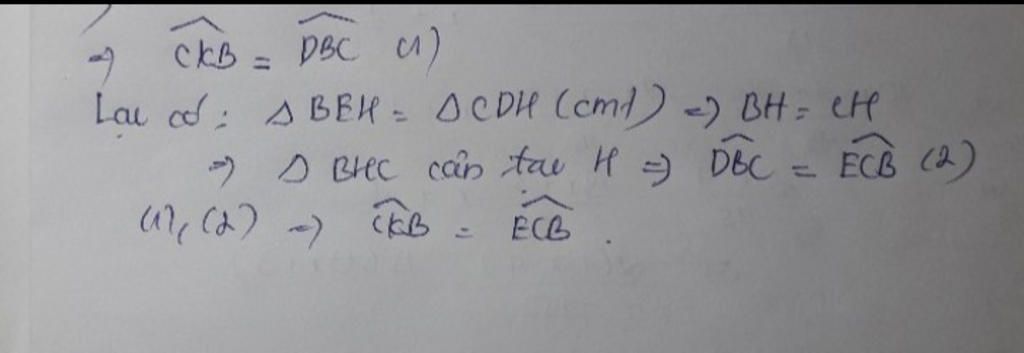 ⇒ \widehat{CKB} = \widehat{DBC} (1)
Lại có : Δ BEH = Δ CDH (cmt) ⇒ BH = CH
⇒ Δ BHC cân tại H ⇒ \widehat{DBC} = \widehat{ECB} (2)
(1), (2) ⇒ \widehat{CKB} = \widehat{ECB} .